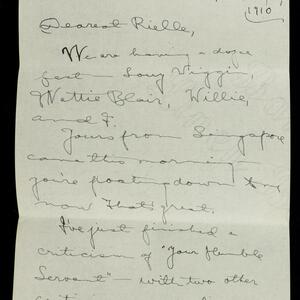 1910
Dearest Rielle,
We are having a dope
fest — Lucy Wiggin,
Mattie Blair, Willie,
and F.
Yours from Singapore
came this morning
you're floating down
now That's great.
I've just finished a
criticism of "Your Humble
Servant" — with two other